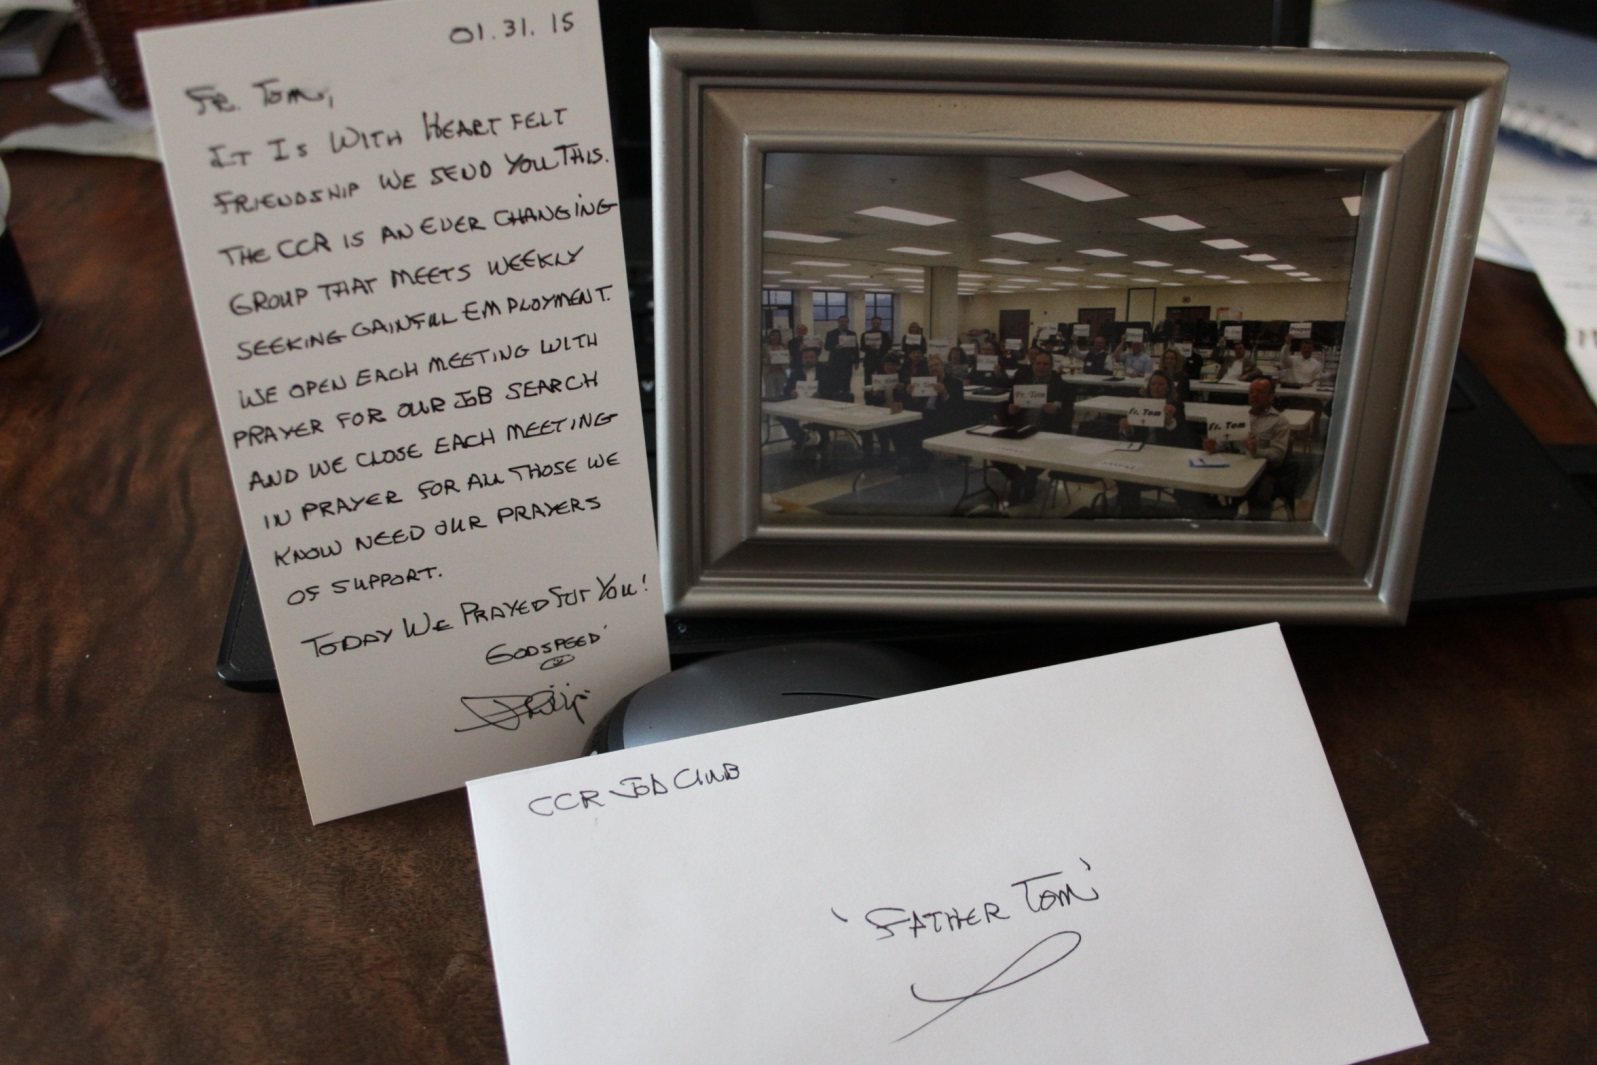 01.31.15
Fr. Tom,
It Is With Heart felt
friendship we send you this.
The CCR is an ever changing
group that meets weekly
seeking gainful employment.
We open each meeting with
prayer for our job search
and we close each meeting
in prayer for all those we
know need our prayers
of support.
Today We Prayed For You!
Godspeed
Philip
Fr. Tom
Fr. Tom
Fr. Tom
CCR Job Club
'Father Tom'